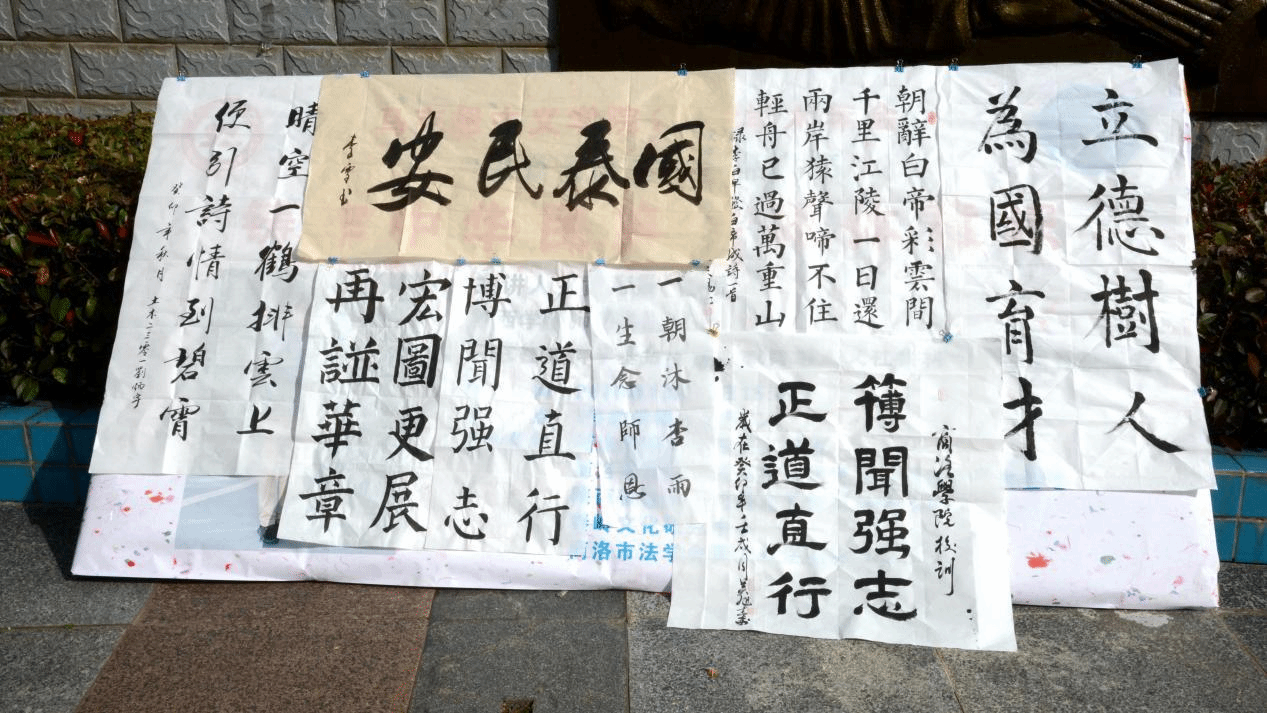 立德樹人
為國育才
朝辭白帝彩雲間
千里江陵一日還
兩岸猿聲啼不住
輕舟已過萬重山
錄李白早發白帝城詩一首
國泰民安
李雪书
晴空一鶴排雲上
便引詩情到碧霄
癸卯年秋月
土木二三零一劉
正道直行
博聞强志
宏圖更展
再諩華章
一朝沐杏雨
一生念師恩
商洛學院校訓
簙聞强志
正道直行
歲在癸卯年
洛市法学